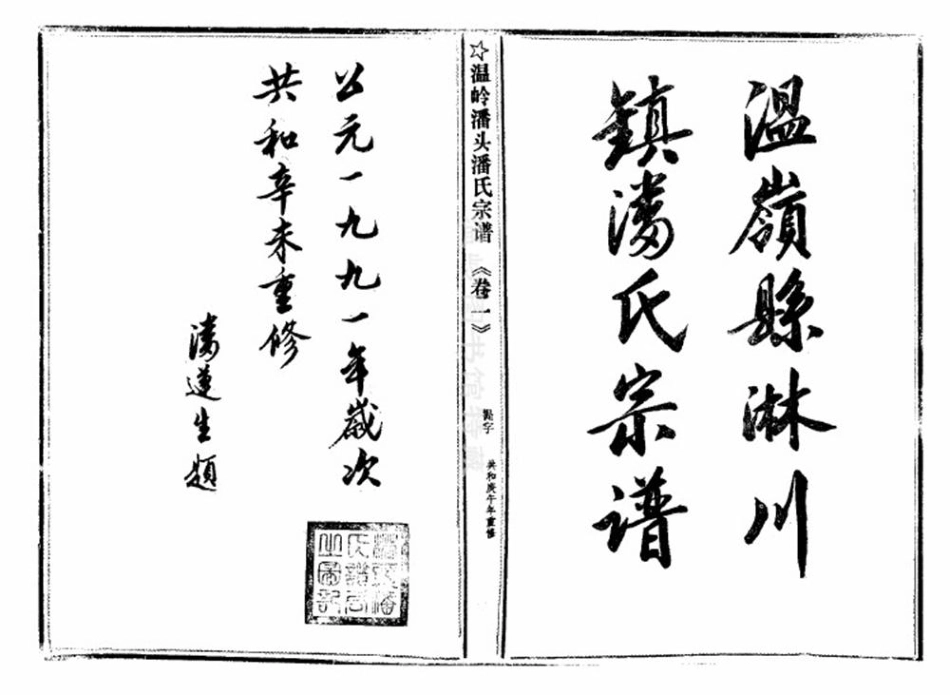 温嶺縣淋川
鎮潘氏宗谱
☆温岭潘头潘氏宗谱《卷一》 字 共和庚午年重修
公元一九九一年歲次
共和辛未重修
潘生題